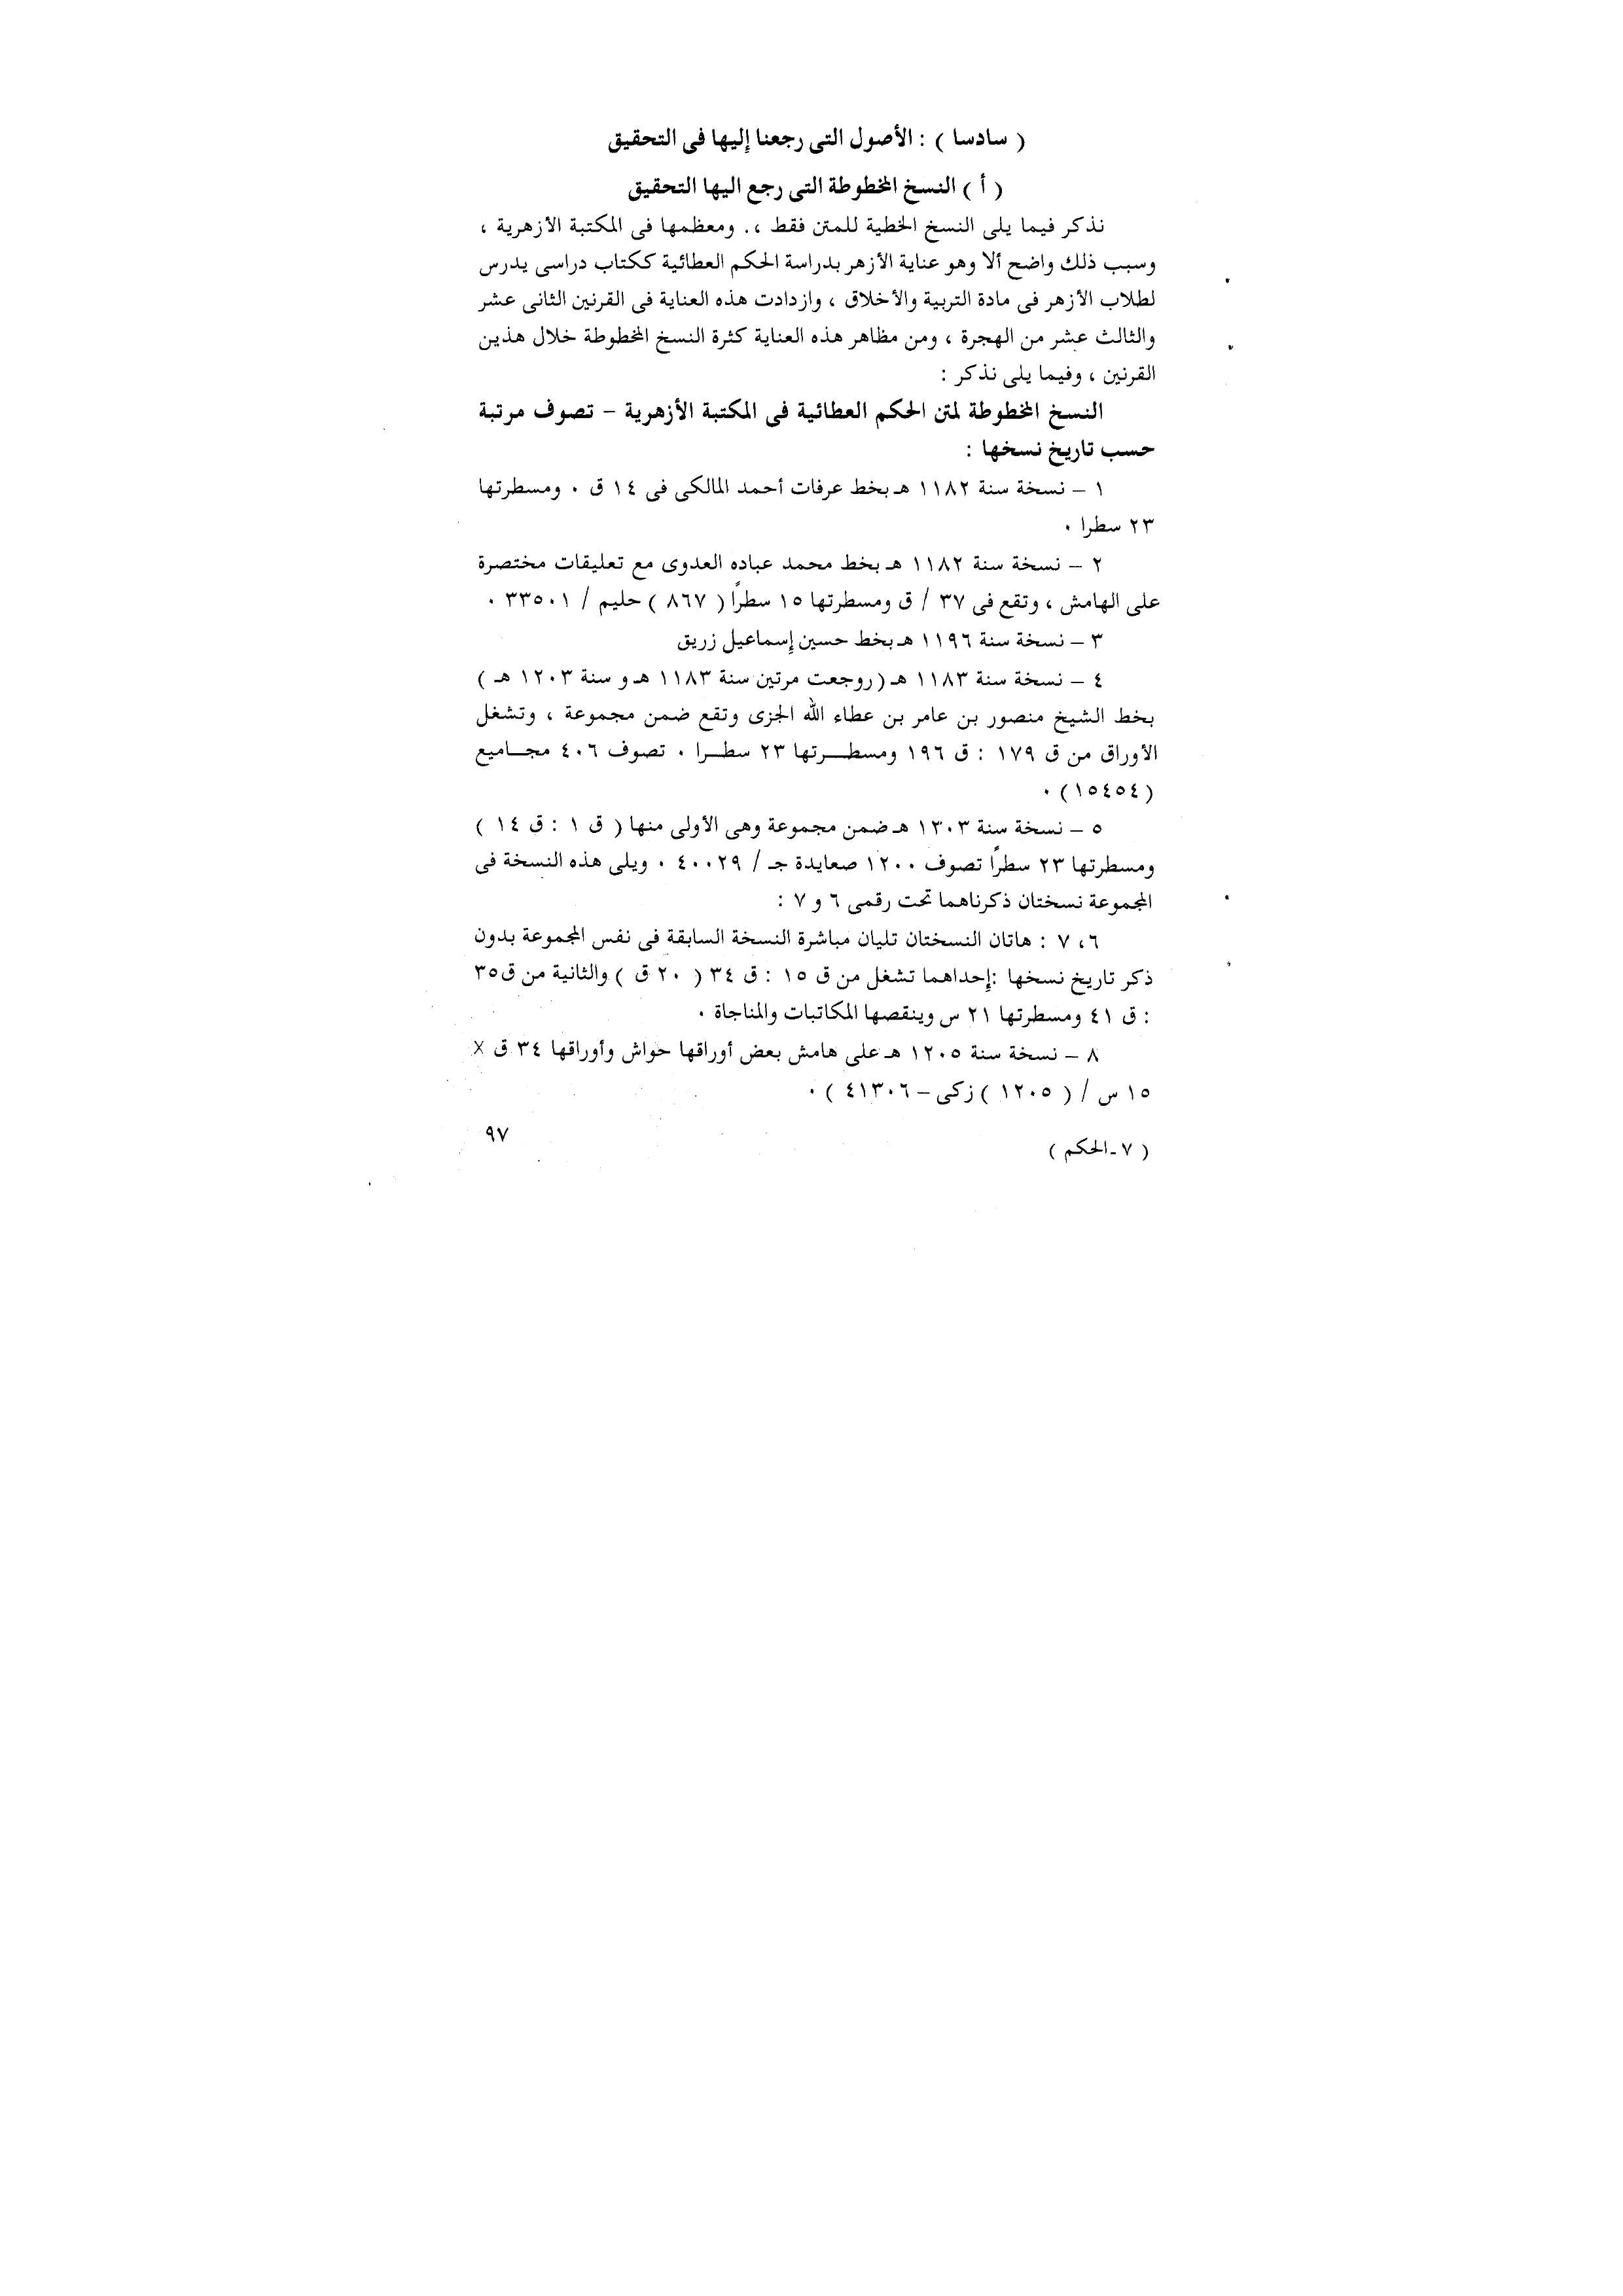 ( سادسا ) : الأصول التى رجعنا إليها فى التحقيق
( أ ) النسخ المخطوطة التى رجع اليها التحقيق
نذكر فيما يلى النسخ الخطية للمتن فقط ،. ومعظمها فى المكتبة الأزهرية ،
وسبب ذلك واضح ألا وهو عناية الأزهر بدراسة الحكم العطائية ككتاب دراسى يدرس
لطلاب الأزهر فى مادة التربية والأخلاق ، وازدادت هذه العناية فى القرنين الثانى عشر
والثالث عشر من الهجرة ، ومن مظاهر هذه العناية كثرة النسخ المخطوطة خلال هذين
القرنين ، وفيما يلى نذكر :
النسخ المخطوطة لمتن الحكم العطائية فى المكتبة الأزهرية – تصوف مرتبة
حسب تاريخ نسخها :
١ – نسخة سنة ١١٨٢ هـ بخط عرفات أحمد المالكى فى ١٤ ق . ومسطرتها
٢٣ سطرا .
٢ – نسخة سنة ١١٨٢ هـ بخط محمد عباده العدوى مع تعليقات مختصرة
على الهامش ، وتقع فى ٣٧ / ق ومسطرتها ١٥ سطراً ( ٨٦٧ ) حليم / ٣٣٥٠١ .
٣ – نسخة سنة ١١٩٦ هـ بخط حسين إسماعيل زريق
٤ – نسخة سنة ١١٨٣ هـ ( روجعت مرتين سنة ١١٨٣ هـ و سنة ١٢٠٣ هـ )
بخط الشيخ منصور بن عامر بن عطاء الله الجزى وتقع ضمن مجموعة ، وتشغل
الأوراق من ق ١٧٩ : ق ١٩٦ ومسطـــرتها ٢٣ سطـــرا . تصوف ٤٠٦ مجـــاميع
(١٥٤٥٤) .
٥ – نسخة سنة ١٣٠٣ هـ ضمن مجموعة وهى الأولى منها ( ق ١ : ق ١٤ )
ومسطرتها ٢٣ سطراً تصوف ١٢٠٠ صعايدة جـ / ٤٠٠٢٩ . ويلى هذه النسخة فى
المجموعة نسختان ذكرناهما تحت رقمى ٦ و ٧ :
٦ ، ٧ : هاتان النسختان تليان مباشرة النسخة السابقة فى نفس المجموعة بدون
ذكر تاريخ نسخها :إحداهما تشغل من ق ١٥ : ق ٣٤ ( ٢٠ ق ) والثانية من ق٣٥
: ق ٤١ ومسطرتها ٢١ س وينقصها المكاتبات والمناجاة .
٨ – نسخة سنة ١٢٠٥ هـ على هامش بعض أوراقها حواش وأوراقها ٣٤ ق X
١٥ س / ( ١٢٠٥ ) زكى – ٤١٣٠٦ ) .
٩٧
( ٧ ـ الحكم )